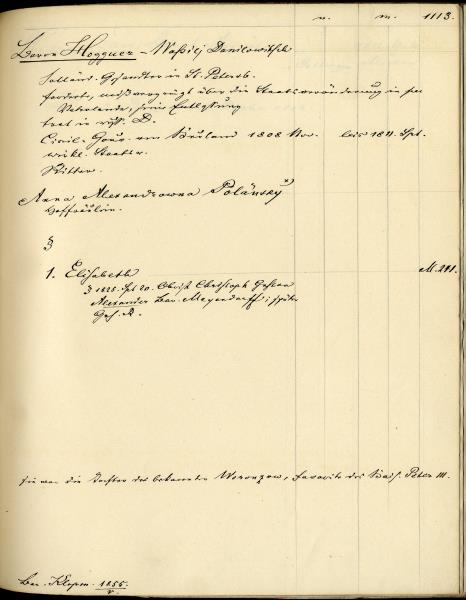 v. m. 1113.
Baron Hogguer - Waßilij Danilowitsch
Holländ. Gesandter in St. Petersb.
forderte, mißvergnügt über die Staatsveränderung in se
Vaterlande, seine Entlassung
trat in russ. D.
Civil-Gouv. von Kurland 1808 Nov. bis 1811. Spt.
wirkl. Staatsr.
Ritter.
Anna Alexandrowna Polänsky x)
Hoffräulein.
§
1. Elisabeth M. 281.
§ 1825. Spt 20. Christ. Christoph Gustav
Alexander Bar. Meyendorff; später
Geh. R.
sie war die Tochter des bekannten Woronzow, Favorite des Kais. Peter III.
Bar. Klopm. 1855.
v.